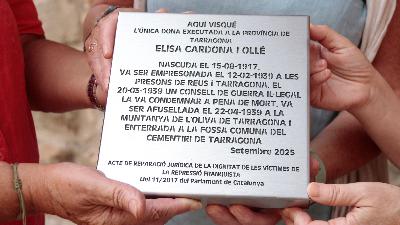 AQUÍ VISQUÉ
L'ÚNICA DONA EXECUTADA A LA PROVÍNCIA DE
TARRAGONA
ELISA CARDONA I OLLÉ
NASCUDA EL 15-08-1917.
VA SER EMPRESONADA EL 12-02-1939 A LES
PRESONS DE REUS I TARRAGONA. EL
20-03-1939 UN CONSELL DE GUERRA IL·LEGAL
LA VA CONDEMNAR A PENA DE MORT. VA
SER AFUSELLADA EL 22-04-1939 A LA
MUNTANYA DE L'OLIVA DE TARRAGONA I
ENTERRADA A LA FOSSA COMUNA DEL
CEMENTIRI DE TARRAGONA
Setembre 2025
ACTE DE REPARACIÓ JURÍDICA DE LA DIGNITAT DE LES VÍCTIMES DE
LA REPRESSIÓ FRANQUISTA
Llei 11/2017 del Parlament de Catalunya